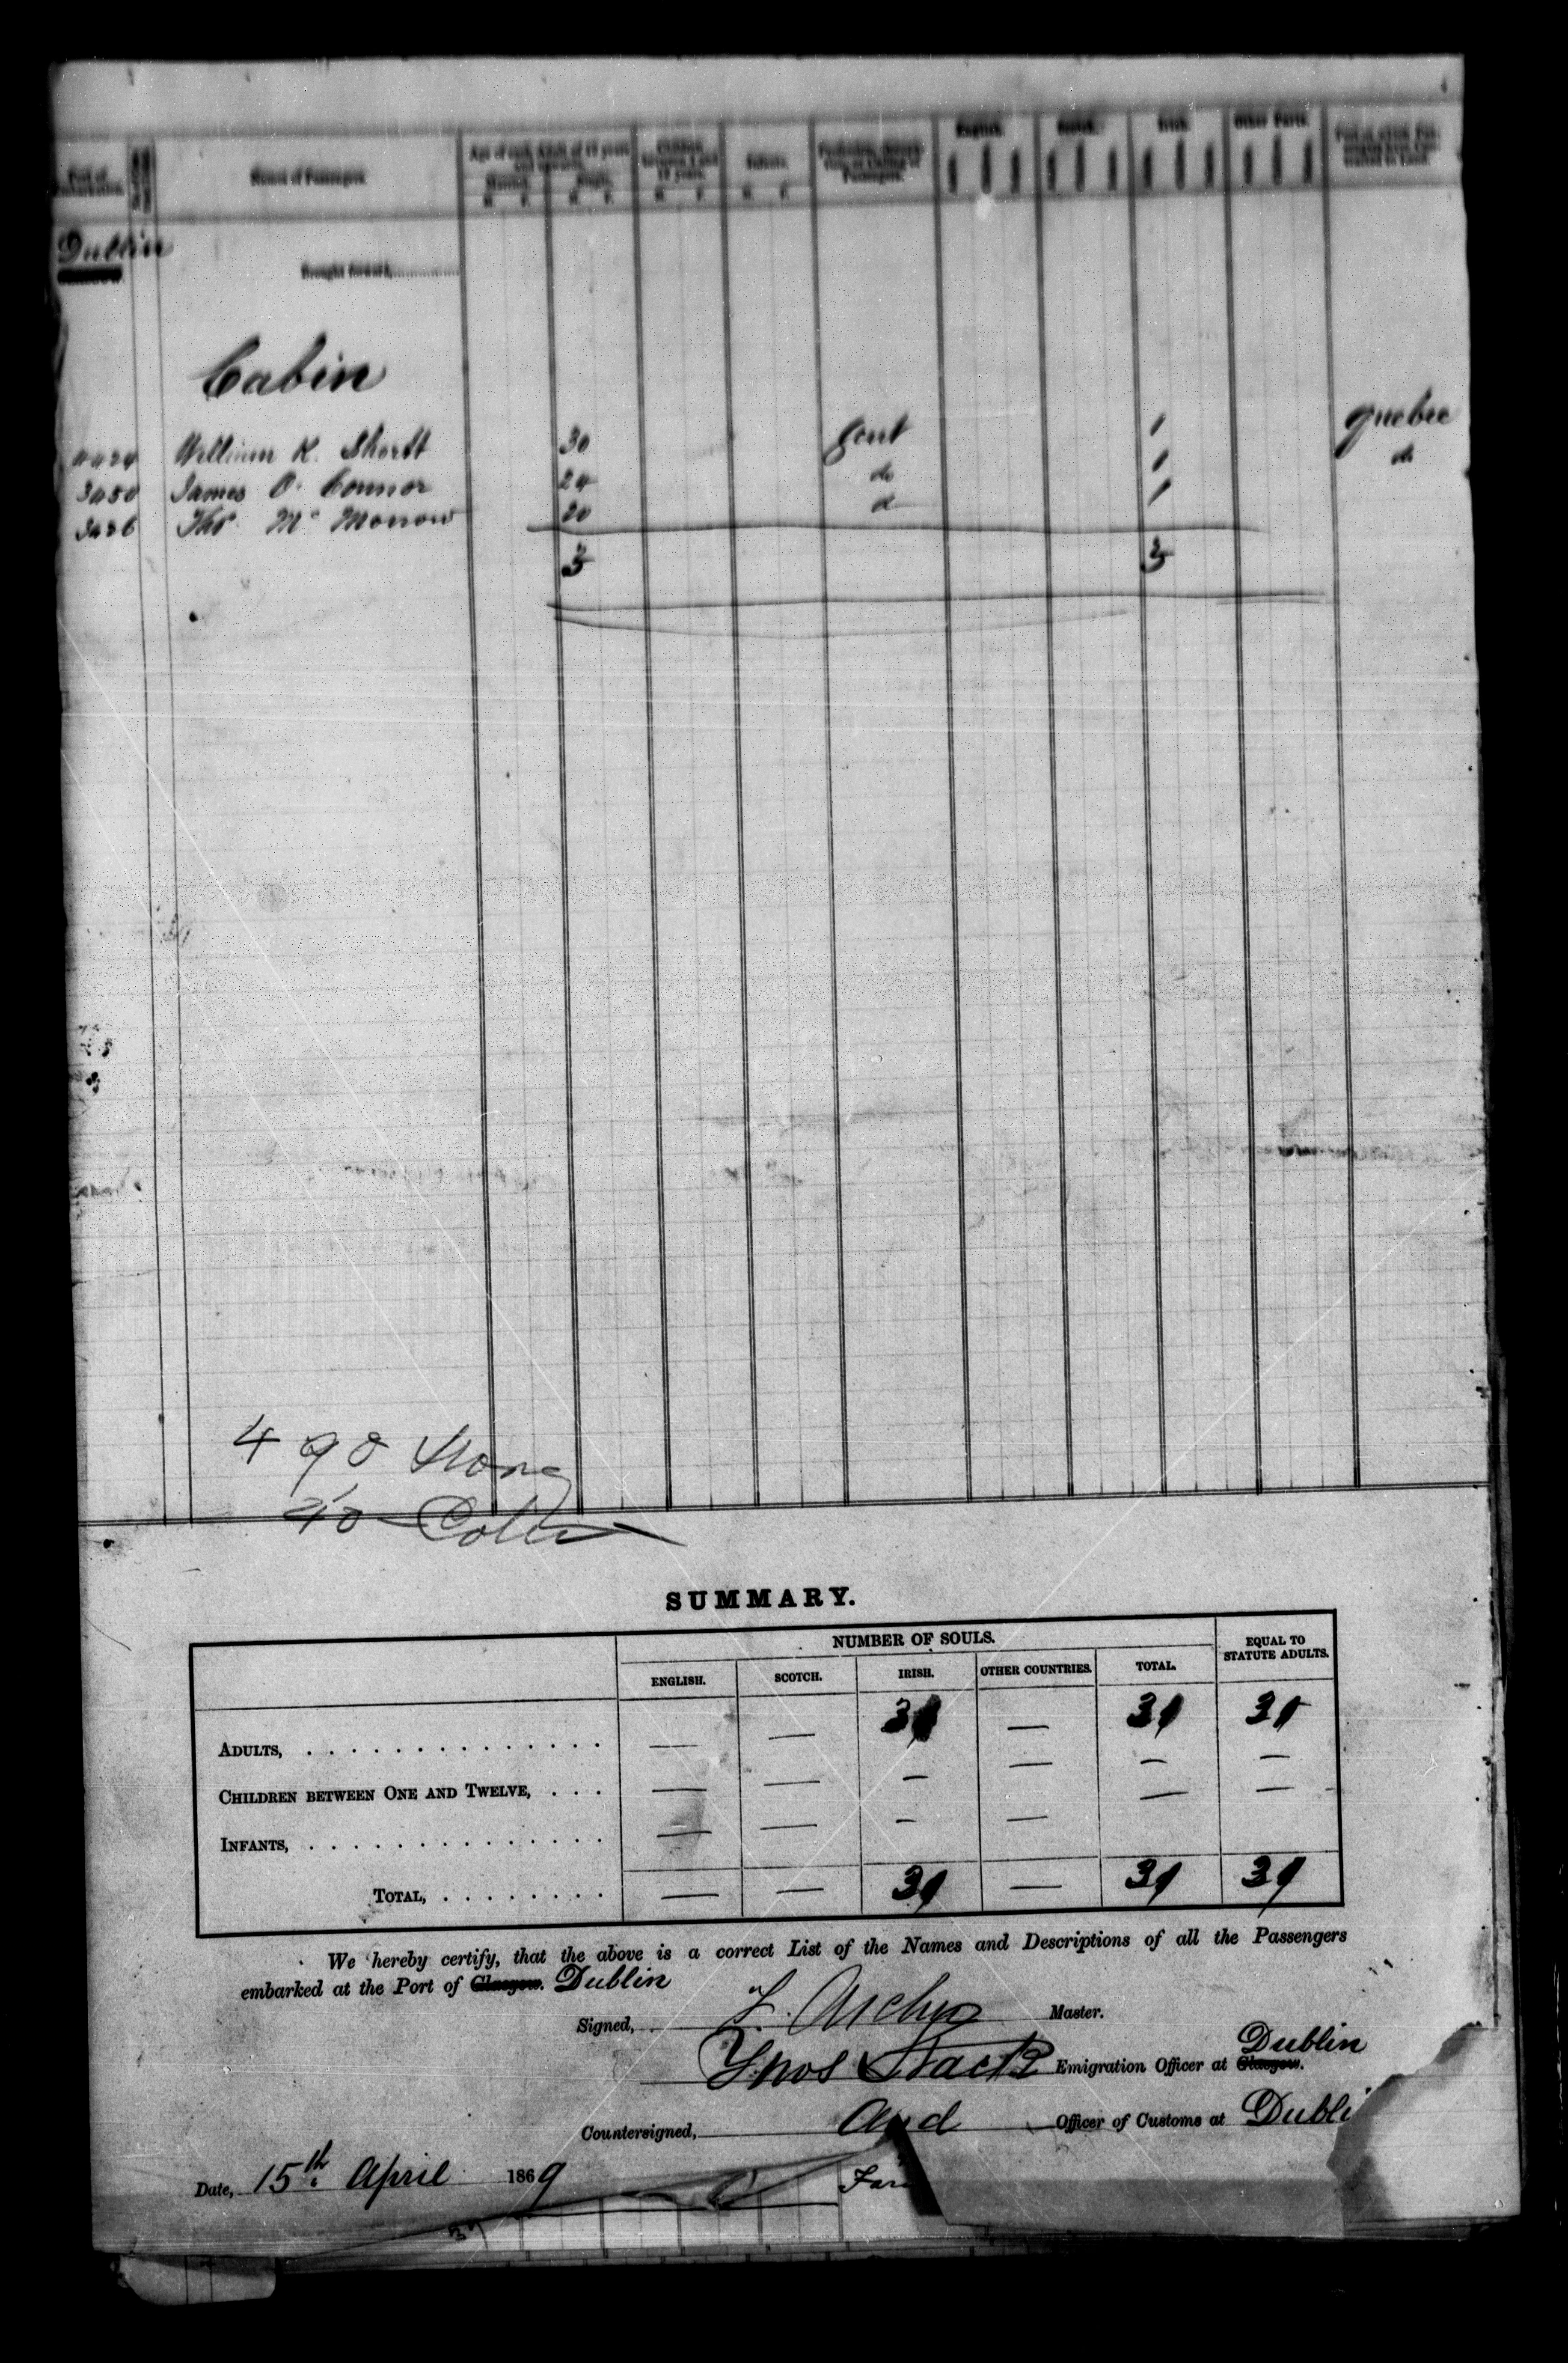 Port of Embarkation. Names of Passengers. Age of each Adult of 12 years and upwards. Children between 1 and 12 years. Infants. Profession, Occupation or Calling of Passengers. English. Scotch. Irish. Other Parts.
Married. Single.
M. F. M. F. M. F. M. F.
Dublin
Brought forward,
Cabin
William K. Shortt 30 Gent 1 Quebec
3450 James O'Connor 24 do 1 do
3426 Thos Mc Morrow 20 do 1
3 3
490
40
SUMMARY.
NUMBER OF SOULS. EQUAL TO STATUTE ADULTS.
ENGLISH. SCOTCH. IRISH. OTHER COUNTRIES. TOTAL.
ADULTS, — — 3 — 3 3
CHILDREN BETWEEN ONE AND TWELVE, — — — — — —
INFANTS, — — — — — —
TOTAL, — — 3 — 3 3
We hereby certify, that the above is a correct List of the Names and Descriptions of all the Passengers
embarked at the Port of Glasgow. Dublin
Signed, Master.
Dublin
Emigration Officer at Glasgow.
Countersigned, Officer of Customs at Dubli
Date, 15th April 1869